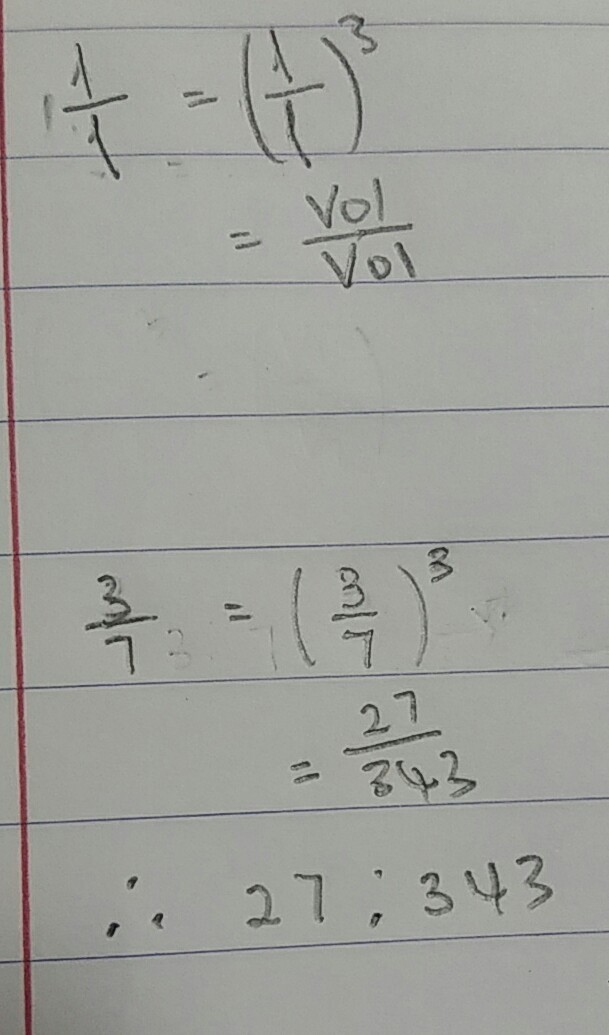 1/1 = (1/1)^3
= Vol/Vol
3/7 = (3/7)^3
= 27/343
∴ 27 : 343